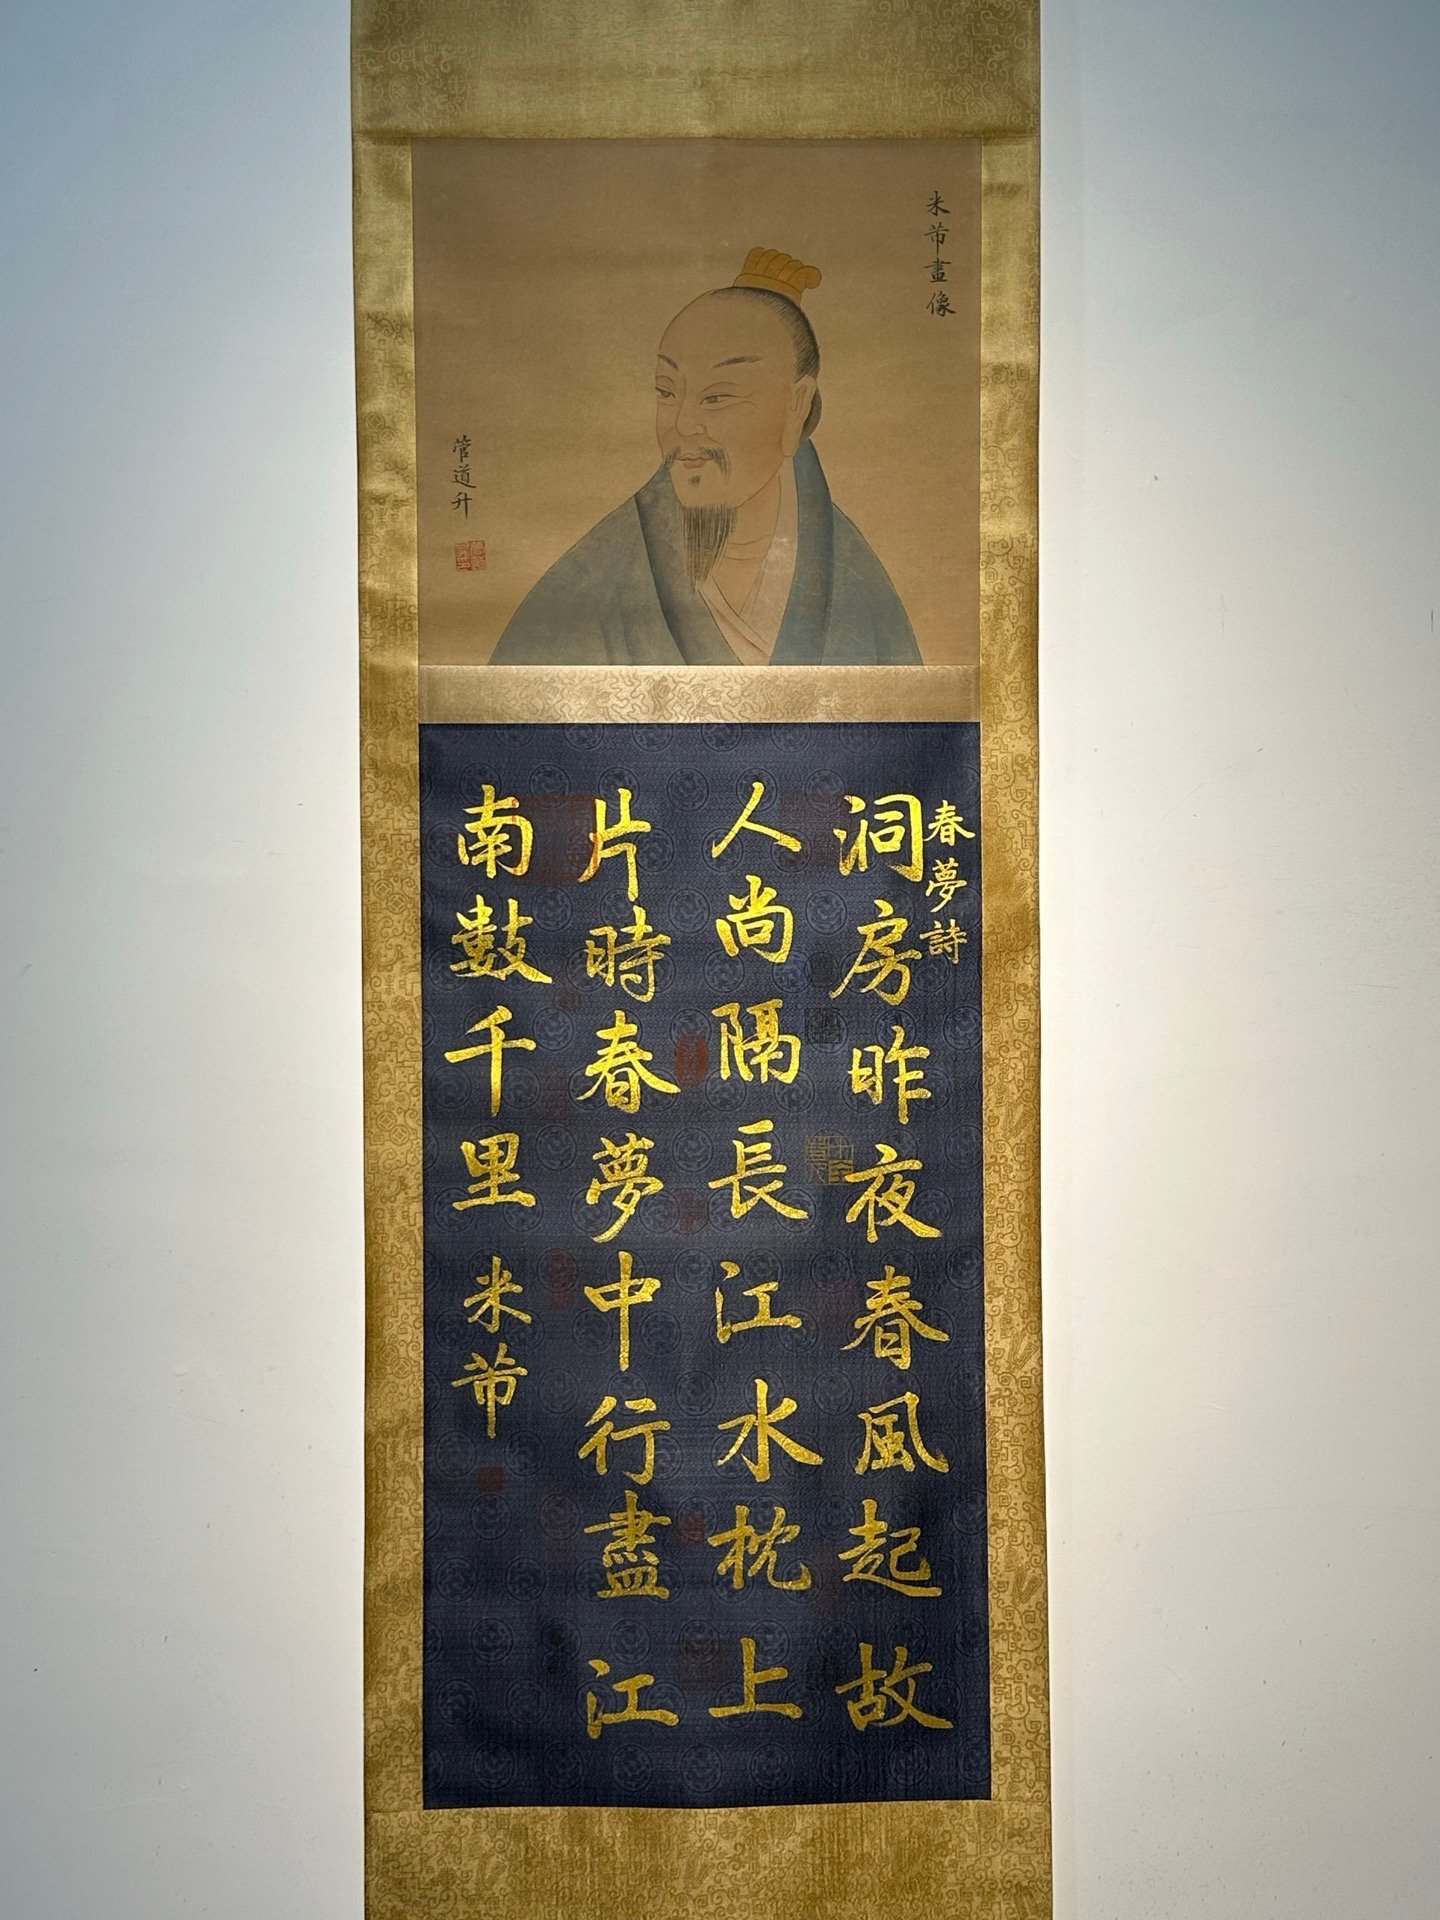 米芾畫像
管道升
春夢詩
洞房昨夜春風起故
人尚隔長江水枕上
片時春夢中行盡江
南數千里 米芾